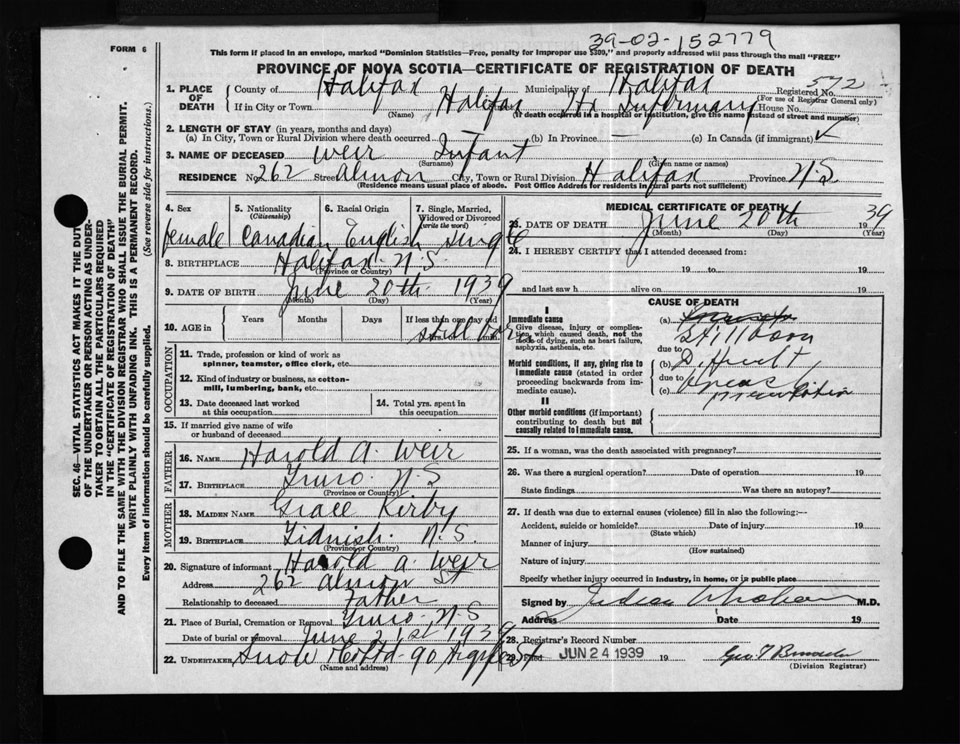 39-02-152779
FORM 6
This form if placed in an envelope, marked "Dominion Statistics—Free, penalty for improper use $300," and properly addressed will pass through the mail "FREE"
PROVINCE OF NOVA SCOTIA—CERTIFICATE OF REGISTRATION OF DEATH
1. PLACE OF DEATH County of Halifax Municipality of Halifax Registered No. 572
(For use of Registrar General only)
If in City or Town Halifax Infirmary House No.
(Name) (If death occurred in a hospital or institution, give its name instead of street and number)
2. LENGTH OF STAY (in years, months and days)
(a) In City, Town or Rural Division where death occurred — (b) In Province — (c) In Canada (if immigrant)
3. NAME OF DECEASED Weir Infant
(Surname) (Given name or names)
RESIDENCE No. 262 Street Almon City, Town or Rural Division Halifax Province N.S
(Residence means usual place of abode. Post Office Address for residents in rural parts not sufficient)
4. Sex female
5. Nationality (Citizenship) Canadian
6. Racial Origin English
7. Single, Married, Widowed or Divorced (write the word) Single
8. BIRTHPLACE Halifax N.S.
(Province or Country)
9. DATE OF BIRTH June 20th 1939
(Month) (Day) (Year)
10. AGE in Years Months Days If less than one day old
still born
OCCUPATION
11. Trade, profession or kind of work as spinner, teamster, office clerk, etc.
12. Kind of industry or business, as cotton-mill, lumbering, bank, etc.
13. Date deceased last worked at this occupation
14. Total yrs. spent in this occupation
15. If married give name of wife or husband of deceased
FATHER
16. NAME Harold A. Weir
17. BIRTHPLACE Truro. N.S
(Province or Country)
MOTHER
18. MAIDEN NAME Grace Kirby
19. BIRTHPLACE Tidnish. N.S.
(Province or Country)
20. Signature of informant Harold A. Weir
Address 262 Almon St
Relationship to deceased Father
21. Place of Burial, Cremation or Removal Truro, N.S
Date of burial or removal June 21st 1939
22. UNDERTAKER Snow & Co Ltd 90 Argyle St
(Name and address)
MEDICAL CERTIFICATE OF DEATH
23. DATE OF DEATH June 20th 1939
(Month) (Day) (Year)
24. I HEREBY CERTIFY that I attended deceased from:
19 to 19
and last saw h alive on 19
CAUSE OF DEATH
I
Immediate cause
Give disease, injury or complication, which caused death, not the mode of dying, such as heart failure, asphyxia, asthenia, etc.
(a)
Stillborn
due to
Morbid conditions, if any, giving rise to immediate cause (stated in order proceeding backwards from immediate cause).
(b) Difficult
due to
(c) Breac presentation
II
Other morbid conditions (if important) contributing to death but not causally related to immediate cause.
25. If a woman, was the death associated with pregnancy?
26. Was there a surgical operation? Date of operation 19
State findings Was there an autopsy?
27. If death was due to external causes (violence) fill in also the following:—
Accident, suicide or homicide? Date of injury 19
(State which)
Manner of injury
(How sustained)
Nature of injury
Specify whether injury occurred in industry, in home, or in public place
Signed by M.D.
Address Date 19
28. Registrar's Record Number
Filed JUN 24 1939 19
(Division Registrar)
SEC. 46—VITAL STATISTICS ACT MAKES IT THE DUTY
OF THE UNDERTAKER OR PERSON ACTING AS UNDER-
TAKER TO OBTAIN ALL THE PARTICULARS REQUIRED
IN THE "CERTIFICATE OF REGISTRATION OF DEATH"
AND TO FILE THE SAME WITH THE DIVISION REGISTRAR WHO SHALL ISSUE THE BURIAL PERMIT.
WRITE PLAINLY WITH UNFADING INK. THIS IS A PERMANENT RECORD.
Every item of information should be carefully supplied. (See reverse side for instructions.)